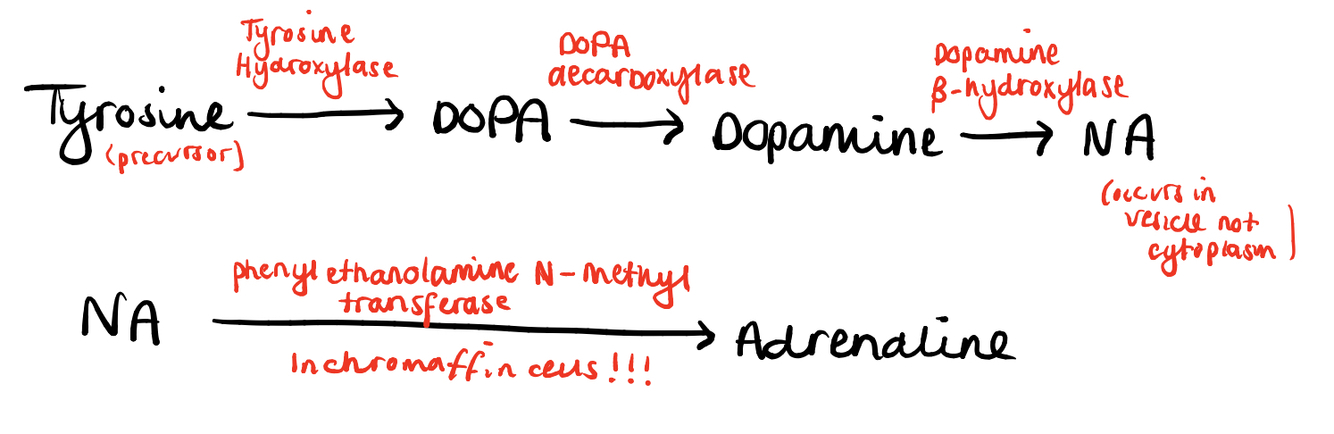 Tyrosine
Hydroxylase
DOPA
decarboxylase
Dopamine
β-hydroxylase
Tyrosine → DOPA → Dopamine → NA
(precursor)
(occurs in
vesicle not
cytoplasm)
phenyl ethanolamine N-methyl
transferase
NA → Adrenaline
In chromaffin cells!!!